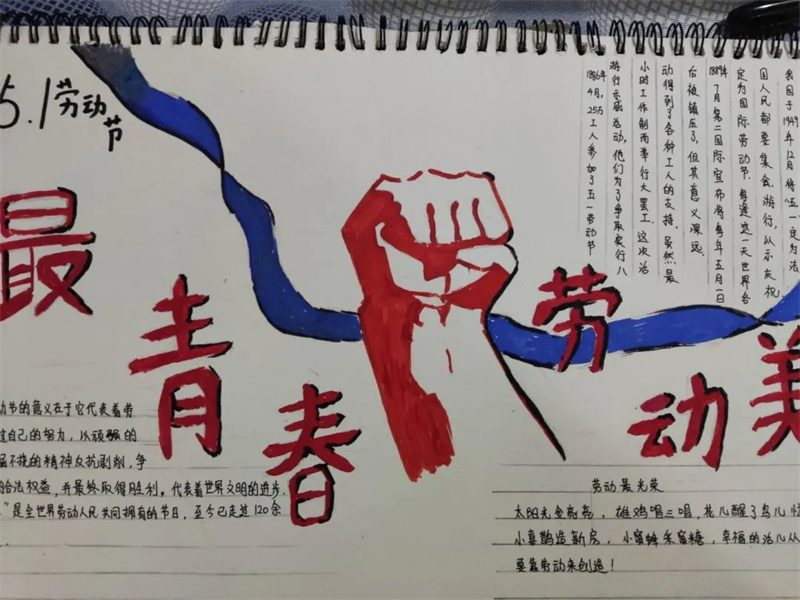 5.1劳动节
最青春
劳动美
1886年4月,25万工人参加了五一劳动节
游行示威总动,他们为了争取实行八
小时工作制而举行大罢工.这次活
动得到了各种工人的支持.虽然最
后被镇压了,但其意义深远.
1889年7月第二国际宣布将每年五月一日
定为国际劳动节.每逢这一天世界各
国人民都要集会、游行,以示庆祝
我国于1949年12月将"五一定为法
动节的意义在于它代表着劳
过自己的努力,以顽强的
屈不挠的精神反抗剥削,争
合法权益,并最终取得胜利,代表着世界文明的进步.
"是全世界劳动人民共同拥有的节日,至今已走过120余
劳动最光荣
太阳光金亮亮,雄鸡唱三唱,花儿醒了鸟儿忙
小喜鹊造新房,小蜜蜂采蜜糖,幸福的活儿从
要靠劳动来创造!